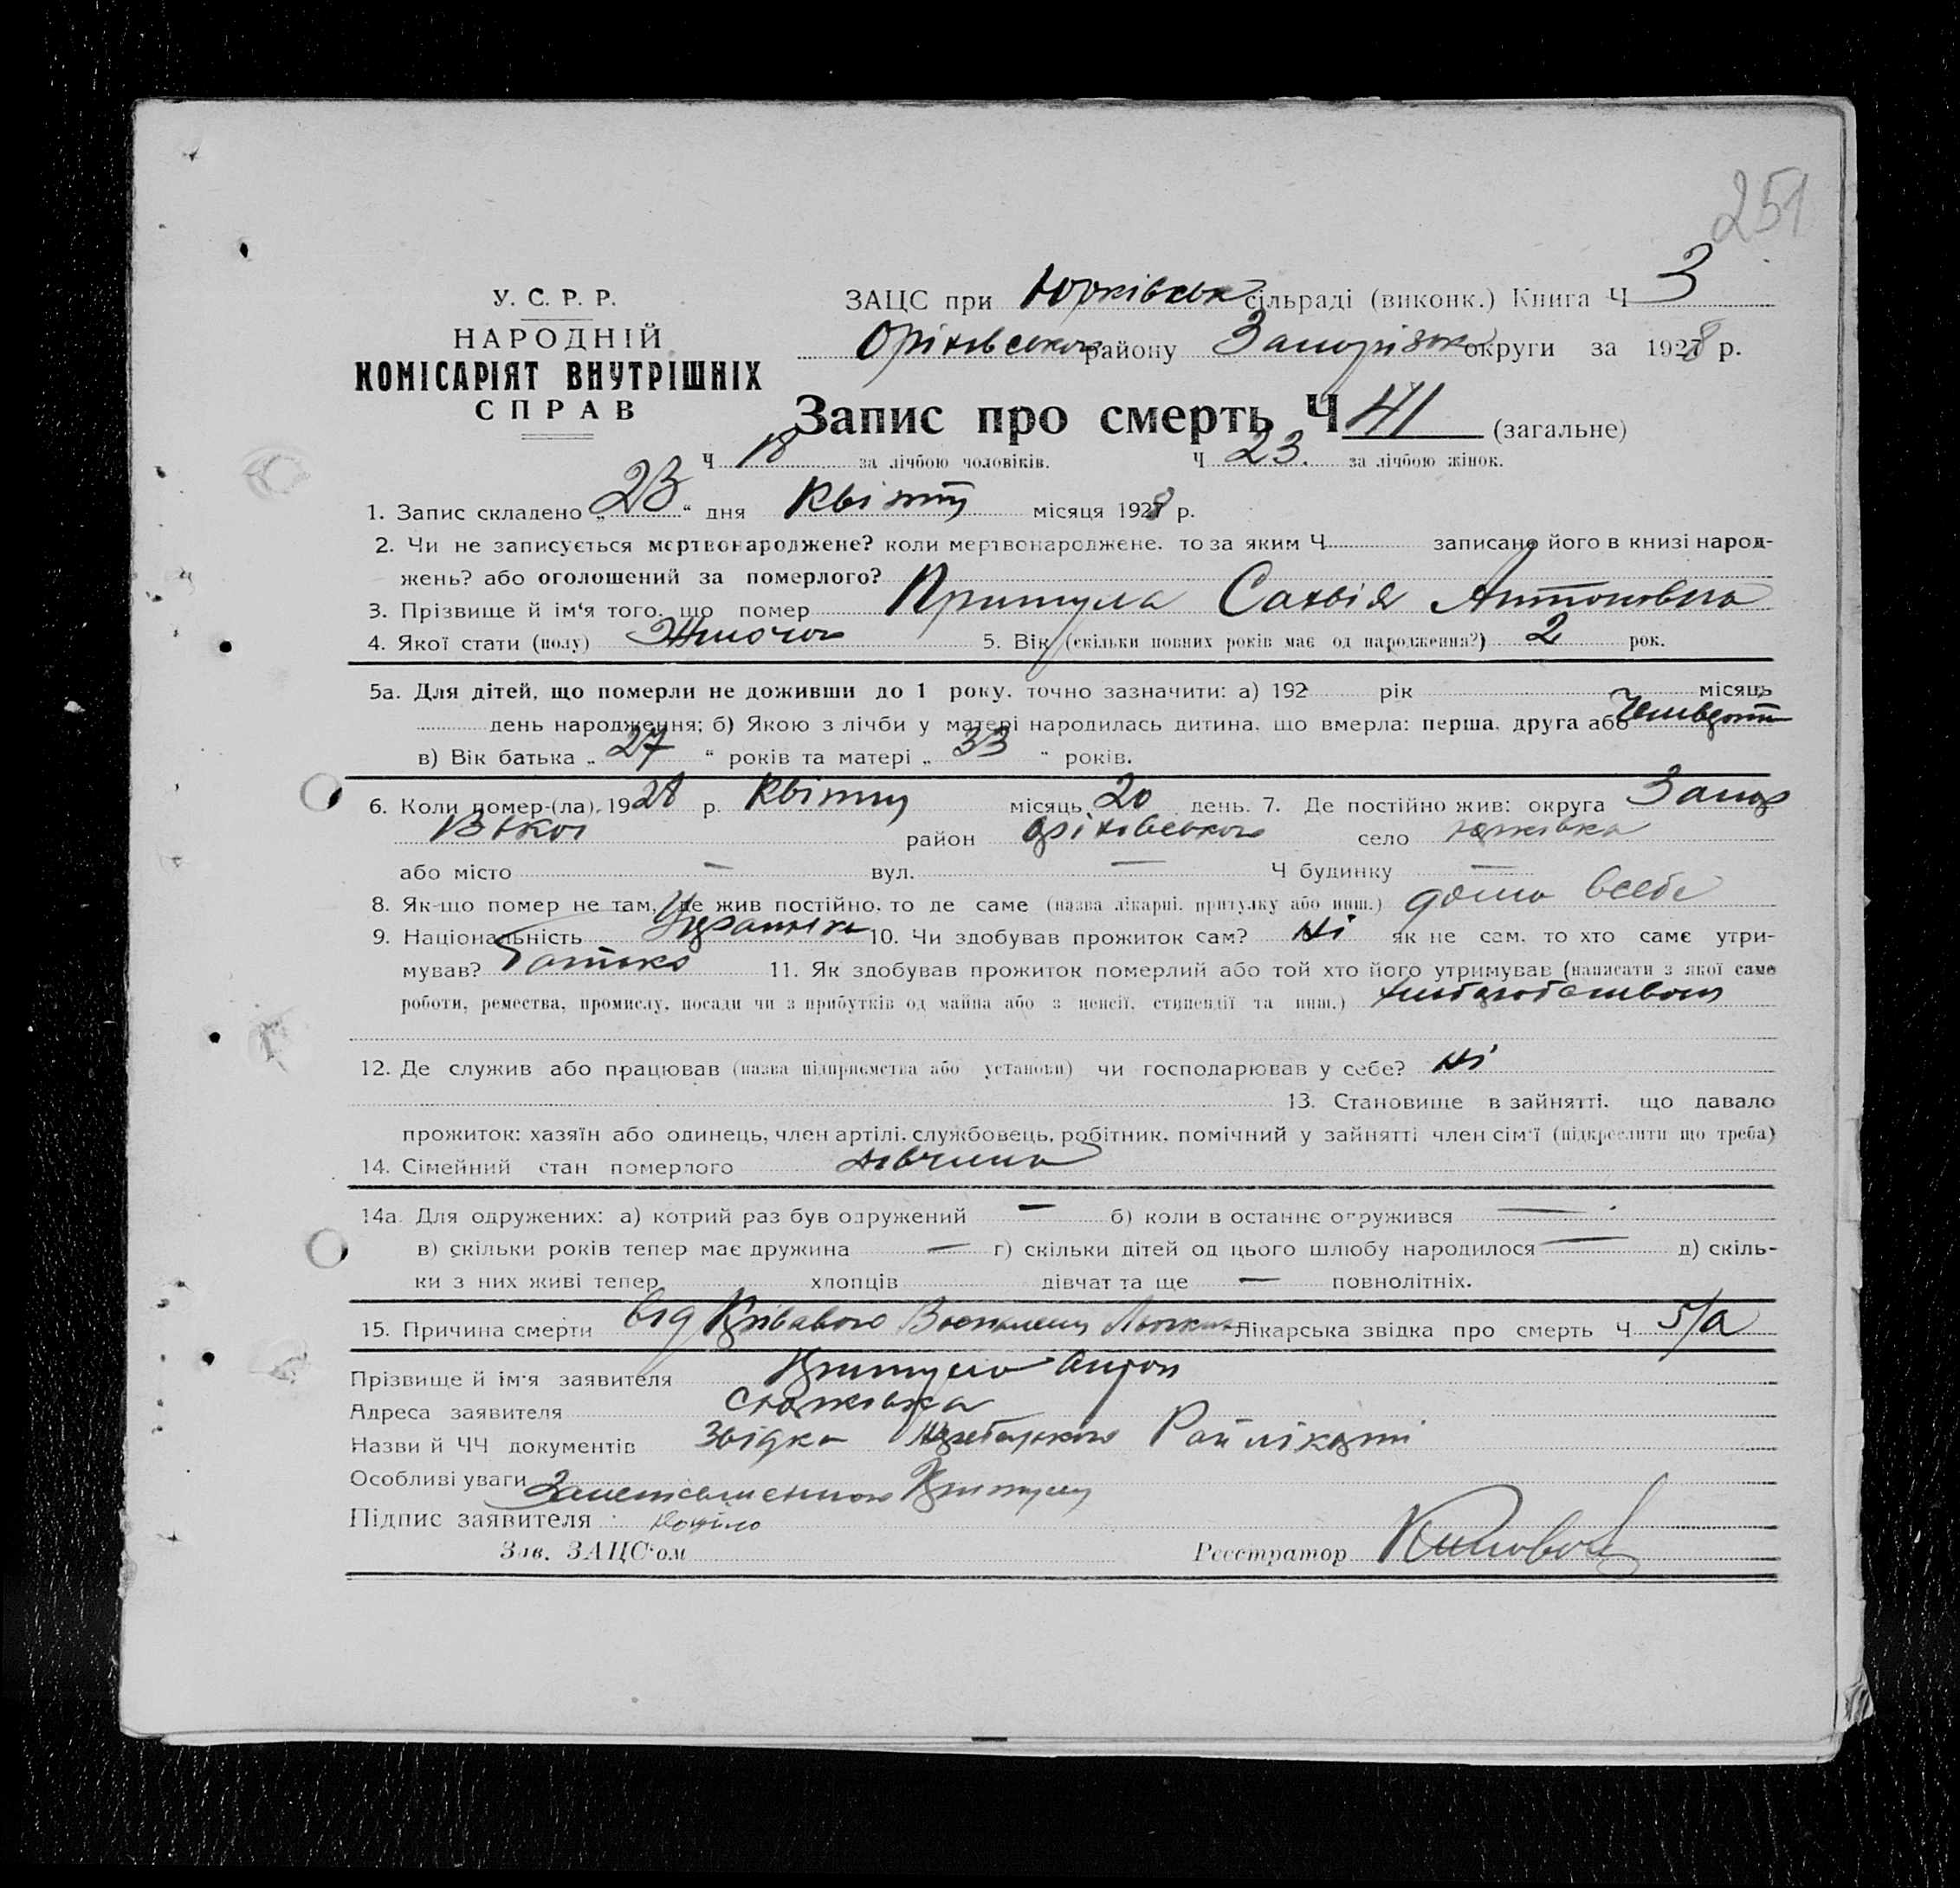 251
У. С. Р. Р.
НАРОДНІЙ
КОМІСАРІЯТ ВНУТРІШНІХ
СПРАВ
ЗАЦС при Юрківськ сільраді (виконк.) Книга Ч 3
Оріхівського району Запорізьк округи за 1928 р.
Запис про смерть Ч 41 (загальне)
Ч 18 за лічбою чоловіків. Ч 23. за лічбою жінок.
1. Запис складено „ 23 “ дня Квітня місяця 1928 р.
2. Чи не записується мертвонароджене? коли мертвонароджене. то за яким Ч записано його в книзі народ-
жень? або оголошений за померлого?
3. Прізвище й ім‘я того. що помер Притула Сахвія Антоновна
4. Якої стати (полу) Жіночої 5. Вік (скільки повних років має од народження?) 2 рок.
5а. Для дітей, що померли не доживши до 1 року. точно зазначити: а) 192 рік місяць
день народження; б) Якою з лічби у матері народилась дитина, що вмерла: перша, друга або Четверта
в) Вік батька „ 27 “ років та матері „ 33 “ років.
6. Коли помер-(ла). 1928 р. Квітня місяць 20 день. 7. Де постійно жив: округа Запор
район Оріхівського село Юрківка
або місто — вул. — Ч будинку —
8. Як-що помер не там, де жив постійно, то де саме (назва лікарні, притулку або инш.) дома всебе
9. Національність Українка 10. Чи здобував прожиток сам? Ні як не сам, то хто саме утри-
мував? Батько 11. Як здобував прожиток померлий або той хто його утримував (написати з якої саме
роботи, ремества, промислу, посади чи з прибутків од майна або з пенсії, стипендії та инш.) хліборобством
12. Де служив або працював (назва підприємства або установи) чи господарював у себе? Ні
13. Становище в зайнятті, що давало
прожиток: хазяїн або одинець, член артілі, службовець, робітник, помічний у зайнятті член сім‘ї (підкреслити що треба)
14. Сімейний стан померлого дівчина
14а. Для одружених: а) котрий раз був одружений — б) коли в останнє одружився —
в) скільки років тепер має дружина — г) скільки дітей од цього шлюбу народилося — д) скіль-
ки з них живі тепер хлопців дівчат та ще — повнолітніх.
15. Причина смерти від Лікарська звідка про смерть Ч 5/а
Прізвище й ім‘я заявителя Притула Антон
Адреса заявителя с Юрківка
Назви й ЧЧ документів Звідка Райлікарні
Особливі уваги
Підпис заявителя
Зав. ЗАЦС‘ом Реєстратор